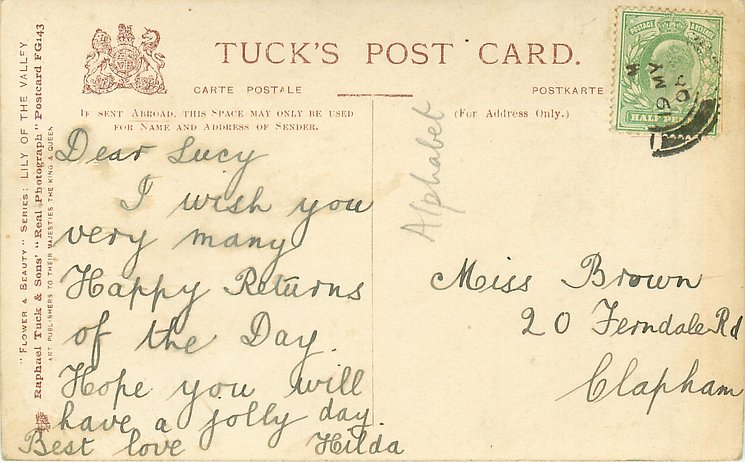 TUCK'S POST CARD.
CARTE POSTALE
POSTKARTE
IF SENT ABROAD, THIS SPACE MAY ONLY BE USED
FOR NAME AND ADDRESS OF SENDER.
(For Address Only.)
"FLOWER & BEAUTY" SERIES: LILY OF THE VALLEY
Raphael Tuck & Sons' "Real Photograph" Postcard FG143
ART PUBLISHERS TO THEIR MAJESTIES THE KING & QUEEN
Dear Lucy
I wish you
very many
Happy Returns
of the Day.
Hope you will
have a jolly day.
Best love Hilda
Alphabet
Miss Brown
20 Ferndale Rd
Clapham
POSTAGE
HALF PENNY
MY